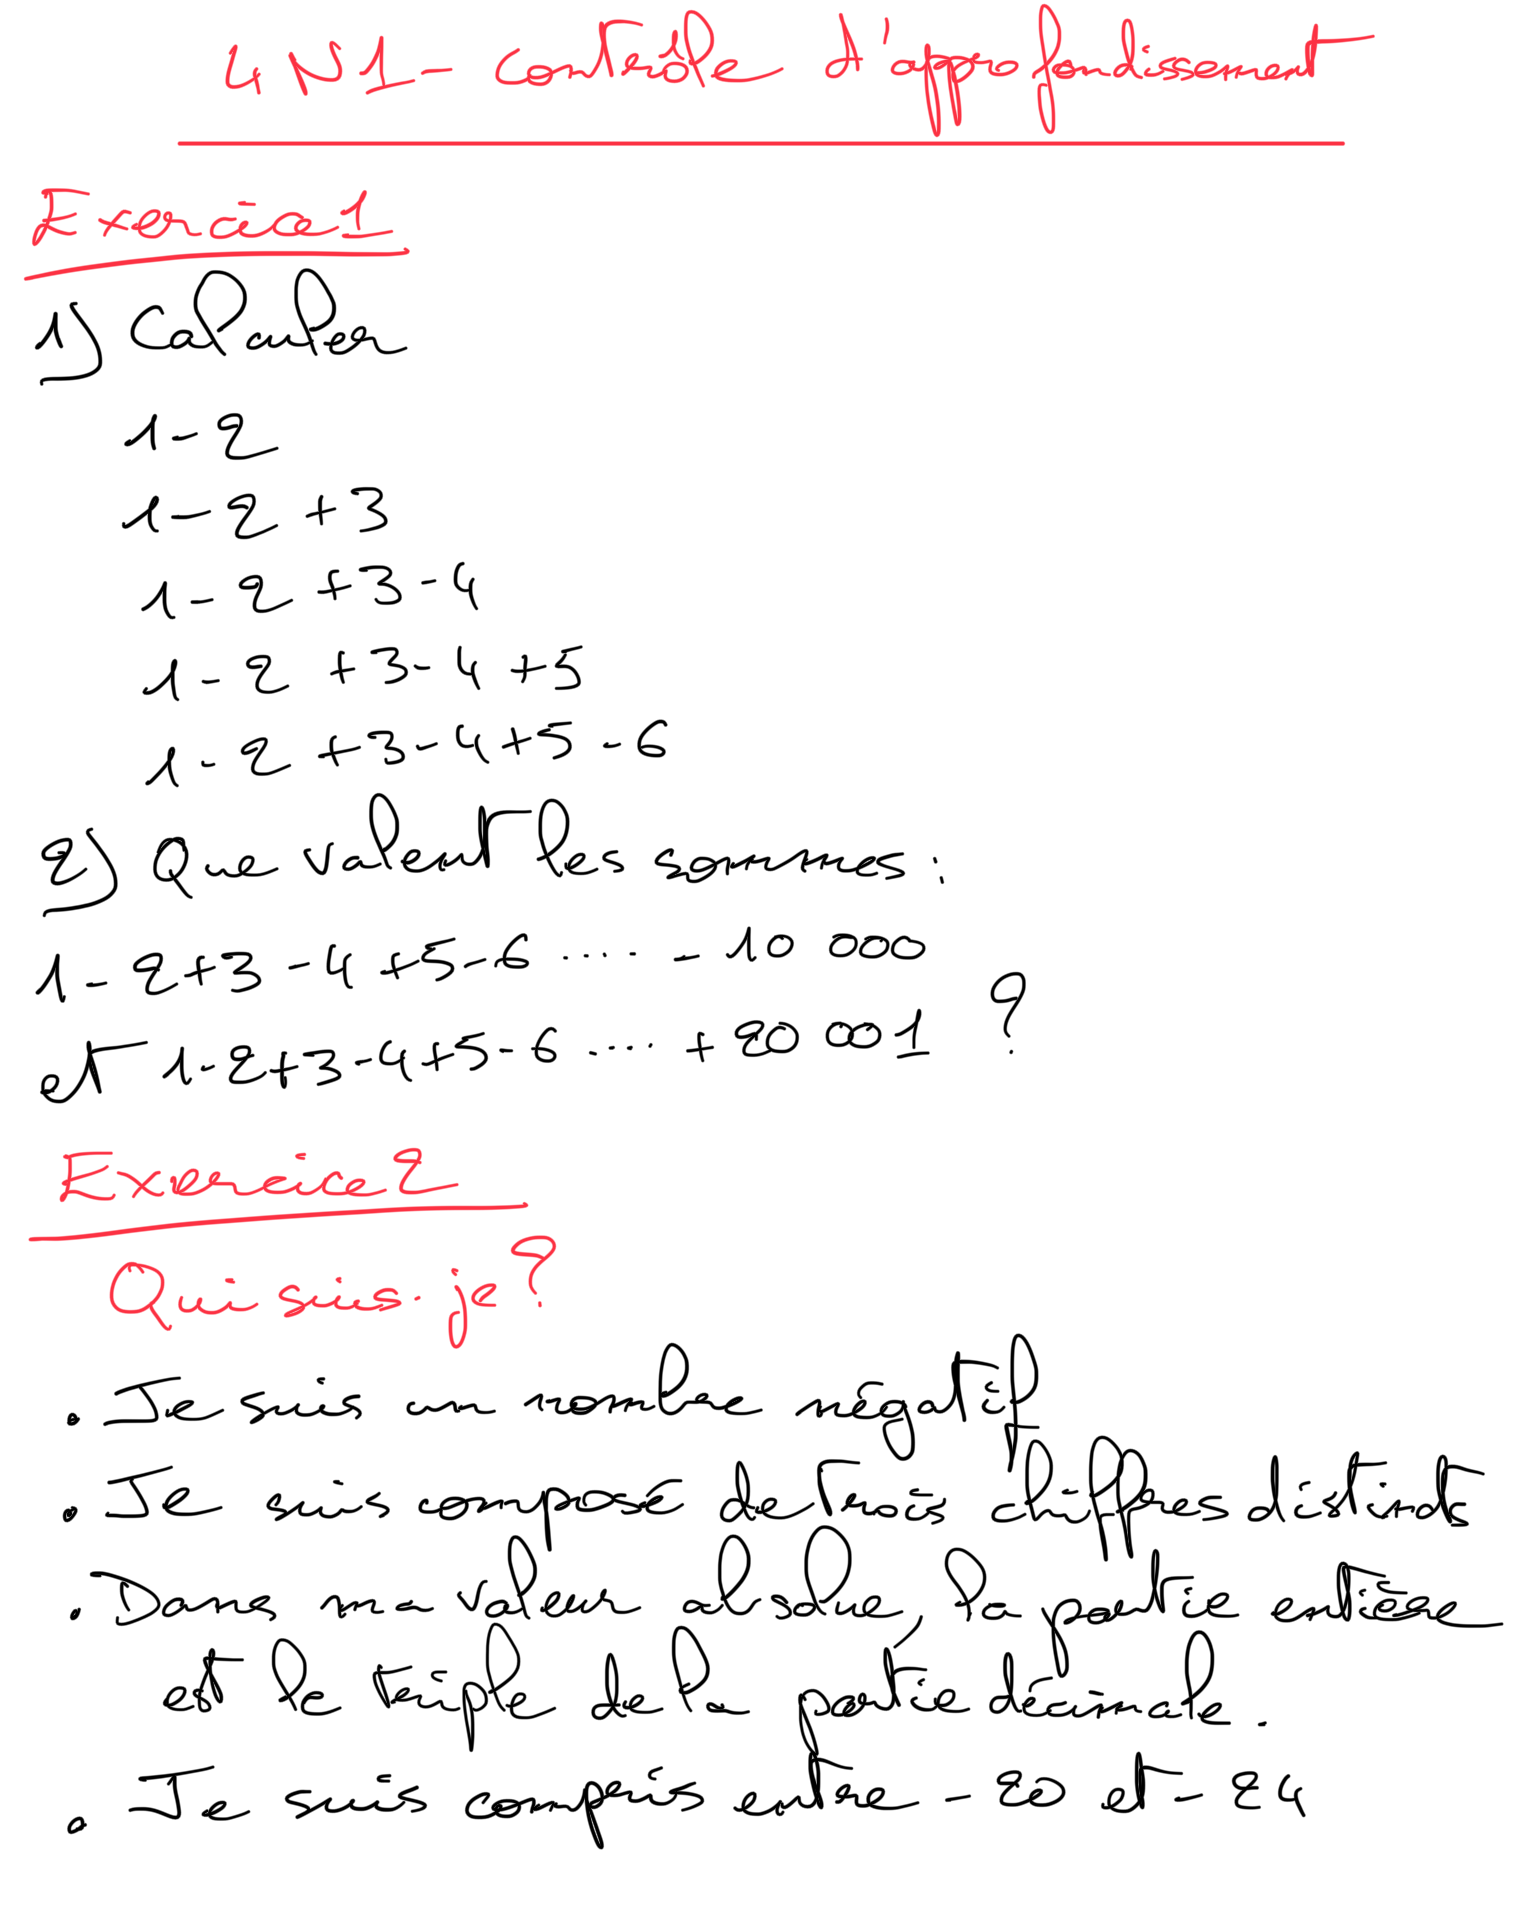 4N1 - contrôle d'approfondissement
Exercice 1
1) Calculer
1-2
1-2+3
1-2+3-4
1-2+3-4+5
1-2+3-4+5-6
2) Que valent les sommes :
1-2+3-4+5-6 ..... - 10 000
et 1-2+3-4+5-6 .... + 20 001 ?
Exercice 2
Qui suis-je ?
. Je suis un nombre négatif
. Je suis composé de trois chiffres distincts
. Dans ma valeur absolue, la partie entière
est le triple de la partie décimale.
. Je suis compris entre -20 et -24